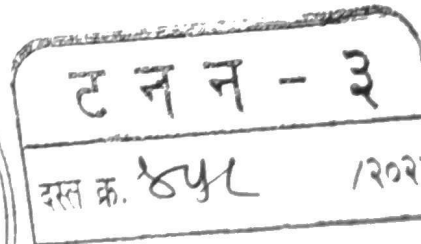 ट न न - ३
दस्त क्र. ४५८ /२०२